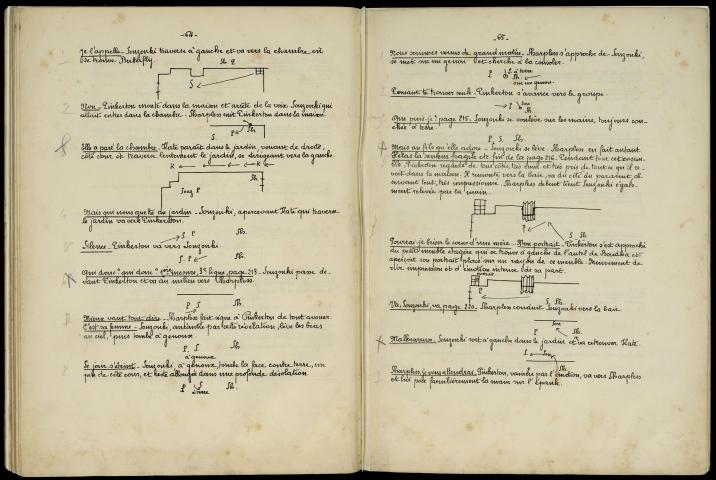 -64-
Je l'appelle - Souzouki traverse à gauche et va vers la chambre où
se trouve Butterfly.
Sh. P.
S
Non - Pinkerton monte dans la maison et arrête de la voix Souzouki qui
allait entrer dans la chambre. Sharpless suit Pinkerton dans la maison.
S. P. Sh.
Elle a paré la chambre. Kate paraît dans le jardin, venant de droite,
côté cour, et traverse lentement le jardin, se dirigeant vers la gauche.
K K K
Sh.
Souz P
Mais qui nous guette du jardin - Souzouki, apercevant Kate qui traverse
le jardin va vers Pinkerton.
S P Sh.
Silence - Pinkerton va vers Souzouki.
S. P Sh.
Qui donc? qui donc? mesure, 3e ligne, page 213 - Souzouki passe de-
vant Pinkerton et va au milieu vers Sharpless.
P S Sh.
Mieux vaut tout dire - Sharpless fait signe à Pinkerton de tout avouer.
C'est sa femme - Souzouki, anéantie par cette révélation, lève les bras
au ciel, puis tombe à genoux
P. S Sh.
à genoux
Le jour s'éteint - Souzouki à genoux, tombe la face contre terre, un
peu de côté cour, et reste allongée dans une profonde désolation.
P S Sh.
à terre
-65-
Nous sommes venus de grand matin. Sharpless s'approche de Souzouki,
se met sur un genou et cherche à la consoler.
P. S à terre
Sh.
sur un genou
Pensant te trouver seule - Pinkerton s'avance vers le groupe.
P Sou
Sh.
Que puis-je? page 215. Souzouki se soulève sur les mains, toujours cou-
chée à terre.
P. S. Sh.
Mais au fils qu'elle adore - Souzouki se lève. Sharpless en fait autant.
Hélas la senteur fragile etc. fin de la page 216. Pendant tout cet ensem-
ble, Pinkerton regarde de tous côtés, très ému et très pris de tout ce qu'il re-
voit dans la maison. Il remonte vers la baie, va du côté du paravent, ob-
servant tout, très impressionné. Sharpless debout tient Souzouki égale-
ment relevée par la main.
P S Sh.
Pourrai-je bien le coeur d'une mère - Mon portrait - Pinkerton s'est approché
du petit meuble étagère qui se trouve à gauche de l'autel de Boudha et
aperçoit son portrait placé sur un rayon de ce meuble. Mouvement de
vive impression et d'émotion intense de sa part.
portrait
P S Sh.
Va, Souzouki, va, page 220. Sharpless conduit Souzouki vers la baie.
Sou
P Sh.
Malheureuse. Souzouki sort à gauche dans le jardin et va retrouver Kate.
S Sou
P Sh.
Sharpless, je vous attendrai. Pinkerton, vaincu par l'émotion, va vers Sharpless
et lui pose familièrement la main sur l'épaule.